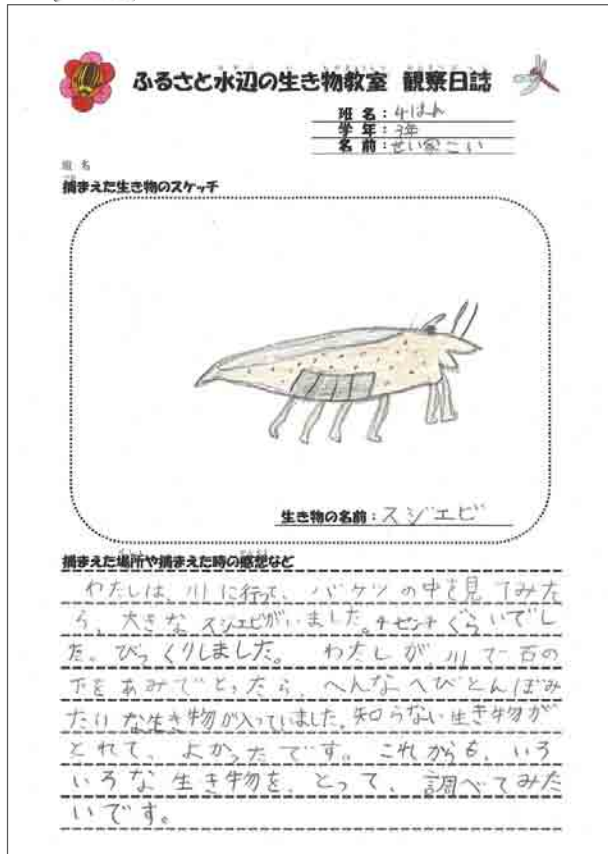 ふるさと水辺の生き物教室 観察日誌
班 名：4はん
学 年：3年
名 前：せい家こい
班 名
捕まえた生き物のスケッチ
生き物の名前：スジエビ
捕まえた場所や捕まえた時の感想など
わたしは、川に行って、バケツの中を見てみた
ら、大きなスジエビがいました。4センチぐらいでし
た。びっくりしました。 わたしが、川で石の
下をあみでとったら、へんなへびとんぼみ
たいな生き物が入っていました。知らない生き物が
とれて、よかったです。これからも、いろ
いろな生き物を、とって、調べてみた
いです。